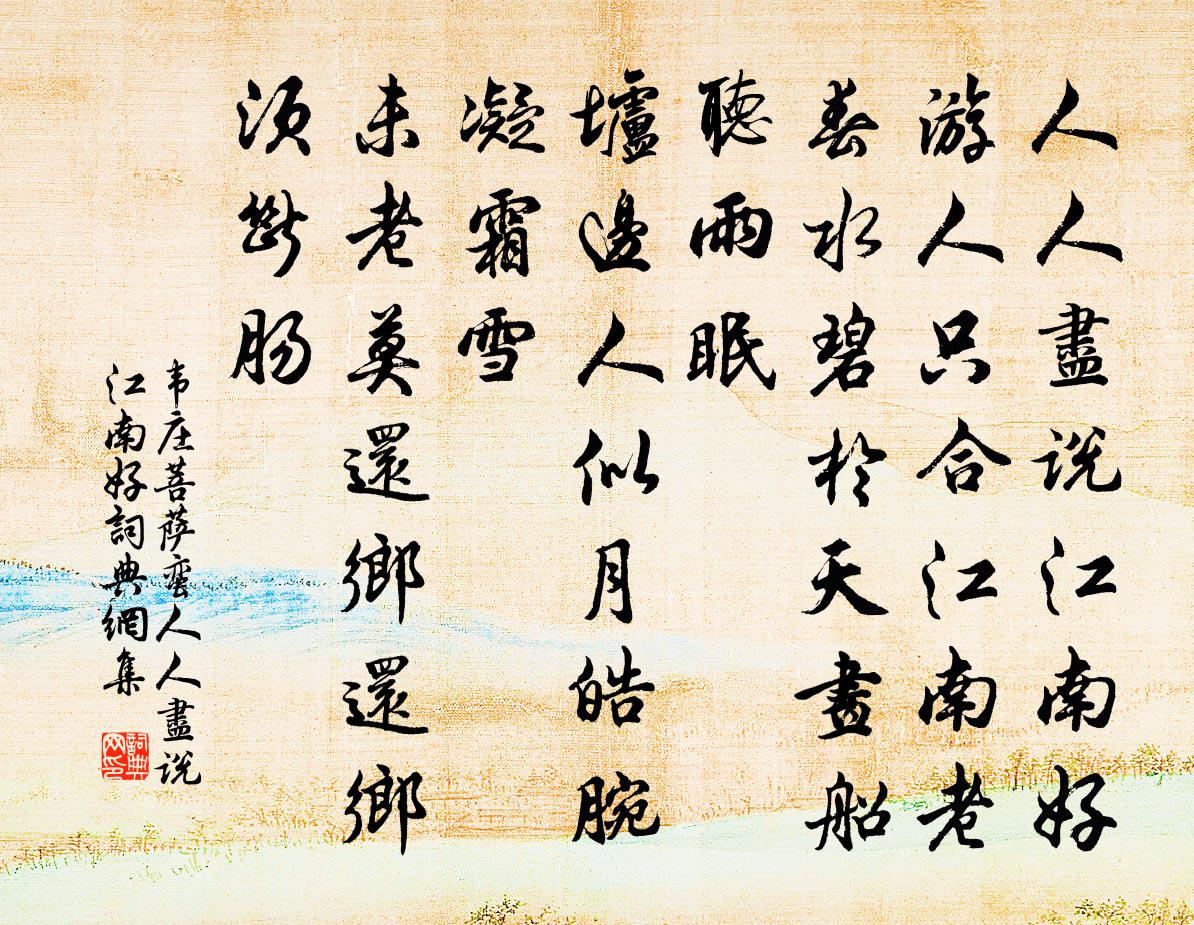 人人盡说江南好
游人只合江南老
春水碧於天畫船
聽雨眠
壚邊人似月皓腕
凝霜雪
未老莫還鄉還鄉
須斷肠
韦庄菩萨蛮人人盡说
江南好詞典網集
詞典
网印